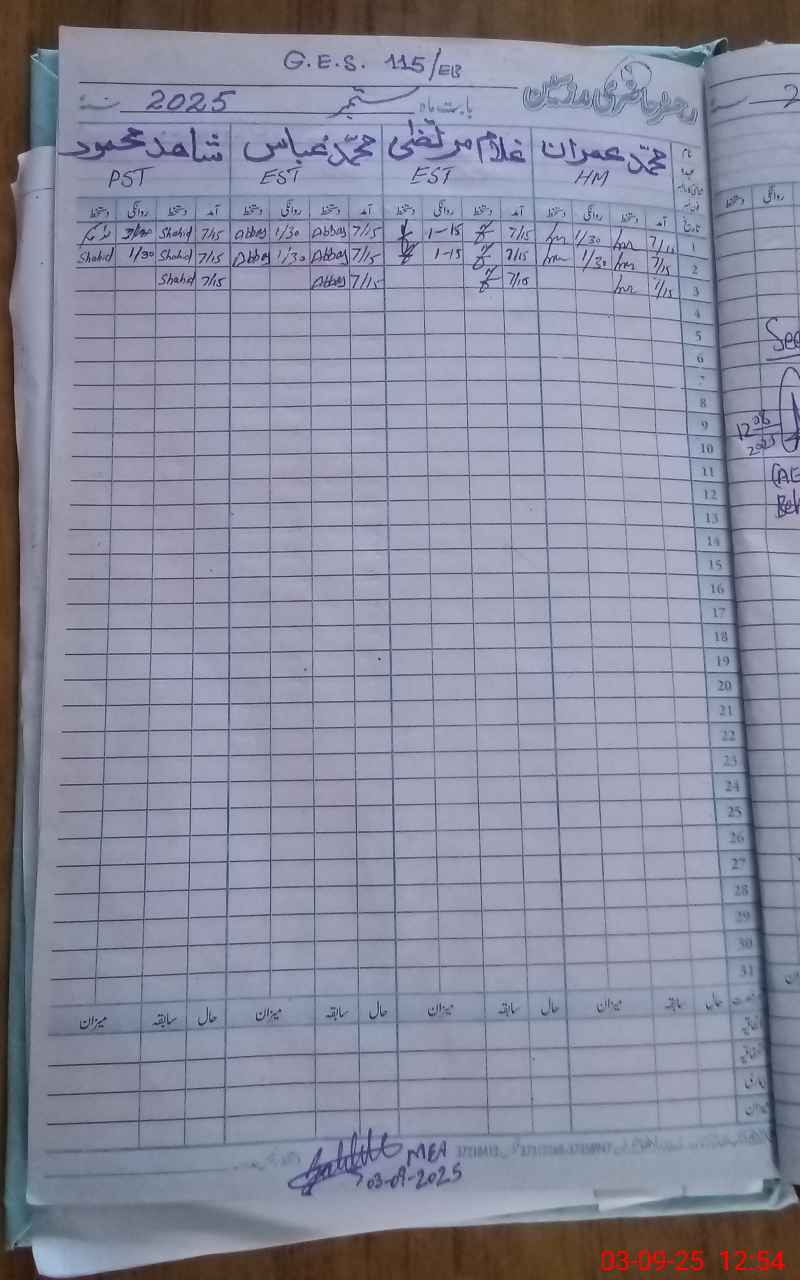 G.E.S. 115/EB
رجسٹر حاضری مدرسین
بابت ماہ ستمبر 2025 سنہ
نام محمد عمران غلام مرتضیٰ محمد عباس شاھد محمود
HM EST EST PST
تاریخ آمد دستخط روانگی دستخط آمد دستخط روانگی دستخط آمد دستخط روانگی دستخط آمد دستخط روانگی دستخط
1 7/15 1/30 7/15 1-15 7/15 Abbas 1/30 Abbas 7/15 Shahid
2 7/15 1/30 7/15 1-15 7/15 Abbas 1/30 Abbas 7/15 Shahid 1/30 Shahid
3 7/15 7/15 7/15 Abbas 7/15 Shahid
4
5
6
7
8
9
10
11
12
13
14
15
16
17
18
19
20
21
22
23
24
25
26
27
28
29
30
31
حال سابقہ میزان حال سابقہ میزان حال سابقہ میزان حال سابقہ میزان
اتفاقیہ
میزان
MEA
03-09-2025
2
See
12 08
2025
(AE
03-09-25 12:54